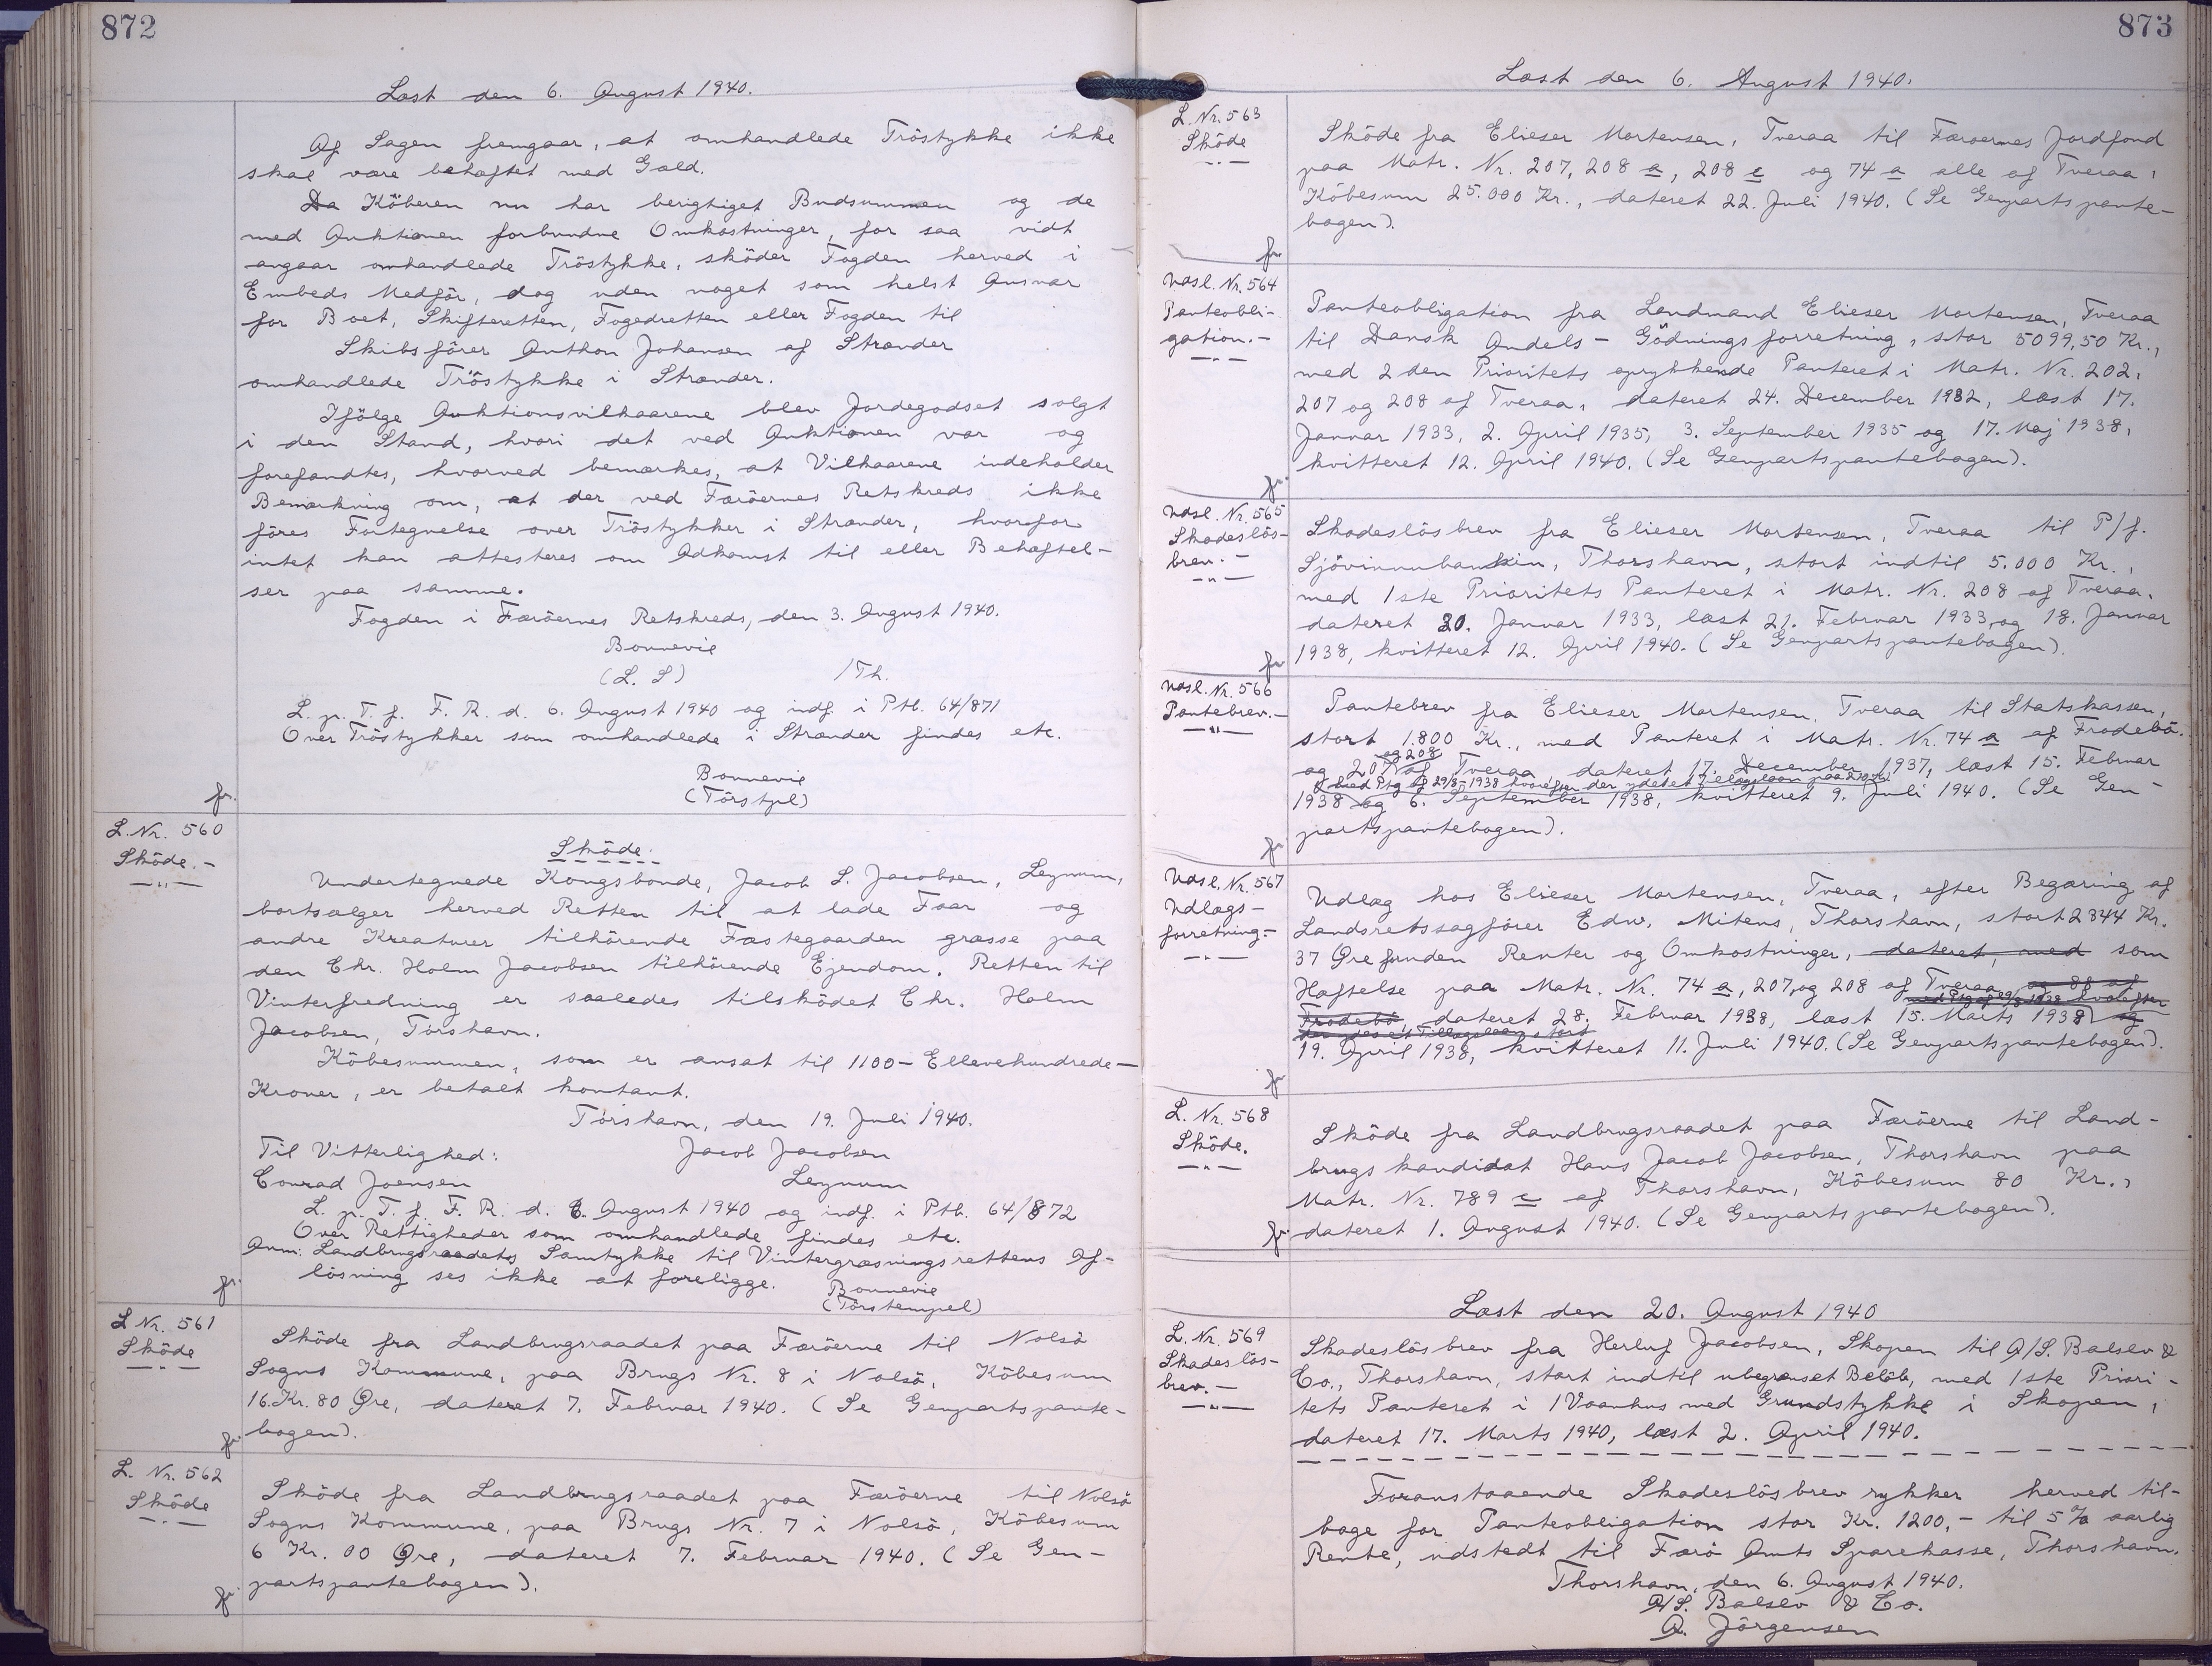 872
Læst den 6. August 1940.
Af Sagen fremgaar, at omhandlede Tröstykke ikke
skal være behæftet med Gæld.
Da Köberen nu har berigtiget Budsummen og de
med Auktionen forbundne Omkostninger, for saa vidt
angaar omhandlede Tröstykke, sköder Fogden herved i
Embeds Medför, dog uden noget som helst Ansvar
for Boet, Skifteretten, Fogedretten eller Fogden til
Skibsförer Anthon Johansen af Strænder
omhandlede Tröstykke i Strænder.
Ifölge Auktionsvilkaarene blev Jordegodset solgt
i den Stand, hvori det ved Auktionen var og
forefandtes, hvorved bemærkes, at Vilkaarene indeholder
Bemærkning om, at der ved Færöernes Retskreds ikke
föres Fortegnelse over Tröstykker i Strænder, hvorfor
intet kan attesteres om Adkomst til eller Behæftel-
ser paa samme.
Fogden i Færöernes Retskreds, den 3. August 1940.
Bonnevie
(L. S) /Th.
L. p. T. f. F. R. d. 6. August 1940 og indf. i Ptb. 64/871
Over Tröstykker som omhandlede i Strænder findes etc.
Bonnevie
(Törstpl)
fr.
L. Nr. 560
Sköde.-
Sköde.
Undertegnede Kongsbonde, Jacob S. Jacobsen, Leynum,
bortsælger herved Retten til at lade Faar og
andre Kreaturer tilhörende Fæstegaarden græsse paa
den Chr. Holm Jacobsen tilhörende Ejendom. Retten til
Vinterfredning er saaledes tilsködet Chr. Holm
Jacobsen, Torshavn.
Köbesummen, som er ansat til 1100 - Ellevehundrede -
Kroner, er betalt kontant.
Torshavn, den 19. Juli 1940.
Til Vitterlighed: Jacob Jacobsen
Conrad Joensen Leynum
L. p. T. f. F. R. d. 6. August 1940 og indf. i Ptb. 64/872
Over Rettigheder som omhandlede findes etc.
Anm: Landbrugsraadets Samtykke til Vintergræsningsrettens Af-
lösning ses ikke at foreligge.
Bonnevie
(Törstempel)
fr.
L Nr. 561
Sköde
Sköde fra Landbrugsraadet paa Færöerne til Nolsö
Sogns Kommune, paa Brugs Nr. 8 i Nolsö, Köbesum
16. Kr. 80 Øre, dateret 7. Februar 1940. (Se Genpartspante-
bogen).
fr.
L. Nr. 562
Sköde
Sköde fra Landbrugsraadet paa Færöerne til Nolsö
Sogns Kommune, paa Brugs Nr. 7 i Nolsö, Köbesum
6 Kr. 00 Øre, dateret 7. Februar 1940. (Se Gen-
partspantebogen).
fr.
873
Læst den 6. August 1940.
L. Nr. 563
Sköde
Sköde fra Elieser Mortensen, Tveraa til Færoernes Jordfond
paa Matr. Nr. 207, 208 a, 208 c og 74 a alle af Tveraa,
Köbesum 25.000 Kr., dateret 22. Juli 1940. (Se Genpartspante-
bogen).
fr
Udsl. Nr. 564
Panteobli-
gation.-
Panteobligation fra Landmand Elieser Mortensen, Tveraa
til Dansk Andels - Gödningsforretning, stor 5099,50 Kr.,
med 2den Prioritets oprykkende Panteret i Matr. Nr. 202,
207 og 208 af Tveraa, dateret 24. December 1932, læst 17.
Januar 1933, 2. April 1935, 3. September 1935 og 17. Maj 1938,
kvitteret 12. April 1940. (Se Genpartspantebogen).
fr.
Udsl. Nr. 565
Skadeslös-
brev.-
Skadeslösbrev fra Elieser Mortensen, Tveraa til P/f.
Sjövinnubankin, Thorshavn, stort indtil 5.000 Kr.,
med 1ste Prioritets Panteret i Matr. Nr. 208 af Tveraa,
dateret 20. Januar 1933, læst 21. Februar 1933, og 18. Januar
1938, kvitteret 12. April 1940. (Se Genpartspantebogen).
fr
Udsl. Nr. 566
Pantebrev.-
Pantebrev fra Elieser Mortensen, Tveraa til Statskassen,
stort 1.800 Kr., med Panteret i Matr. Nr. 74 a af Frodebö.
og 208
og 207 af Tveraa dateret 17. December 1937, læst 15. Februar
med Ptg af 29/8-1938 hvorefter der ydedes Tillægslaan paa
1938 og 6. September 1938, kvitteret 9. Juli 1940. (Se Gen-
partspantebogen).
fr
Udsl. Nr. 567
Udlægs-
forretning.-
Udlæg hos Elieser Mortensen, Tveraa, efter Begæring af
Landsretssagförer Edw. Mitens, Thorshavn, stort 2344 Kr.
37 Øre foruden Renter og Omkostninger, dateret, med som
Hæftelse paa Matr. Nr. 74 a, 207, og 208 af Tveraa og 88 af
med Ptg af 29/8 1938 hvorefter
Frodebö dateret 28. Februar 1938, læst 15. Marts 1938 og
der ydes et Tillægslaan, stort
19. April 1938, kvitteret 11. Juli 1940. (Se Genpartspantebogen).
fr
L. Nr. 568
Sköde.
Sköde fra Landbrugsraadet paa Færöerne til Land-
brugskandidat Hans Jacob Jacobsen, Thorshavn paa
Matr. Nr. 789 c af Thorshavn, Köbesum 80 Kr.,
dateret 1. August 1940. (Se Genpartspantebogen).
fr
Læst den 20. August 1940
L. Nr. 569
Skadeslös-
brev.-
Skadeslösbrev fra Herluf Jacobsen, Skopen til A/S. Balslev &
Co., Thorshavn, stort indtil ubegrænset Belöb, med 1ste Priori-
tets Panteret i 1 Vaanhus med Grundstykke i Skopen,
dateret 17. Marts 1940, læst 2. April 1940.
Foranstaaende Skadeslösbrev rykker herved til-
bage for Panteobligation stor Kr. 1200,- til 5% aarlig
Rente, udstedt til Færö Amts Sparekasse, Thorshavn.
Thorshavn, den 6. August 1940.
A/S. Balslev & Co.
A. Jörgensen